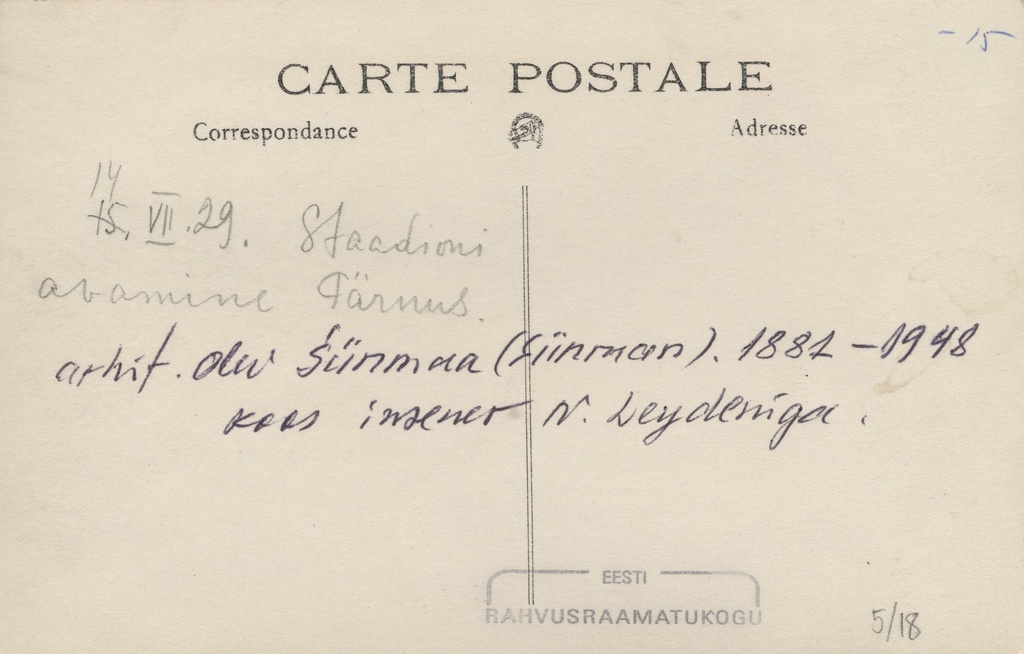 - 15
CARTE POSTALE
Correspondance
Adresse
14
15. VII. 29. Staadioni
avamine Pärnus.
arhit. Olev Siinmaa (Siinman). 1881 - 1948
koos insener N. Leydeniga.
EESTI
RAHVUSRAAMATUKOGU
5/18